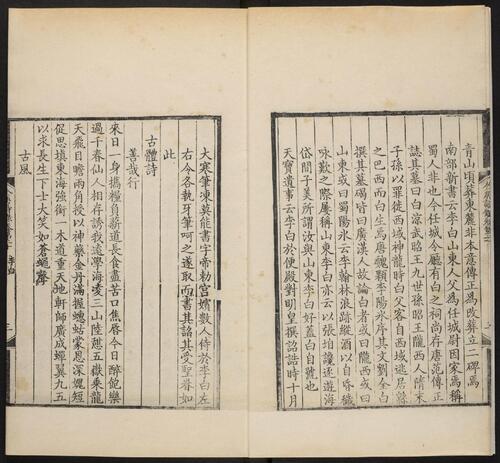 青山頃葬東麓非本意傳正爲改葬立二碑焉
南部新書云李白山東人父爲任城尉因家焉稱
蜀人非也今任城令廳有白之祠尚存唐范傳正
誌其墓曰白涼武昭王九世孫昭王隴西人隋末
子孫以罪徙西域神龍時白父客自西域逃居綿
之巴西而白生焉唐魏顥李陽氷序其文劉全白
撰其墓碣皆曰廣漢人故論白者或曰隴西或曰
山東或曰蜀陽氷云李翰林浪跡縱酒以自昏穢
咏歎之際屢稱山東李白亦云以張垍讒逐遊海
岱間子美所謂汝與山東李白好蓋白自號也
天寶遺事云李白於便殿對明皇撰詔誥時十月
大寒筆凍莫能書字帝勑宫嬪數人侍於李白左
右令各執牙筆呵之遂取而書其詔其受聖眷如
此
古體詩
善哉行
來日一身攜糧負薪道長食盡苦口焦唇今日醉飽樂
過千春仙人相存誘我遠學海凌三山陸憩五嶽乘龍
天飛目瞻兩角授以神藥金丹滿握蟪蛄蒙恩深媿短
促思填東海強銜一木道重天地軒師廣成蟬翼九五
以求長生下士大笑如蒼蠅聲
古風